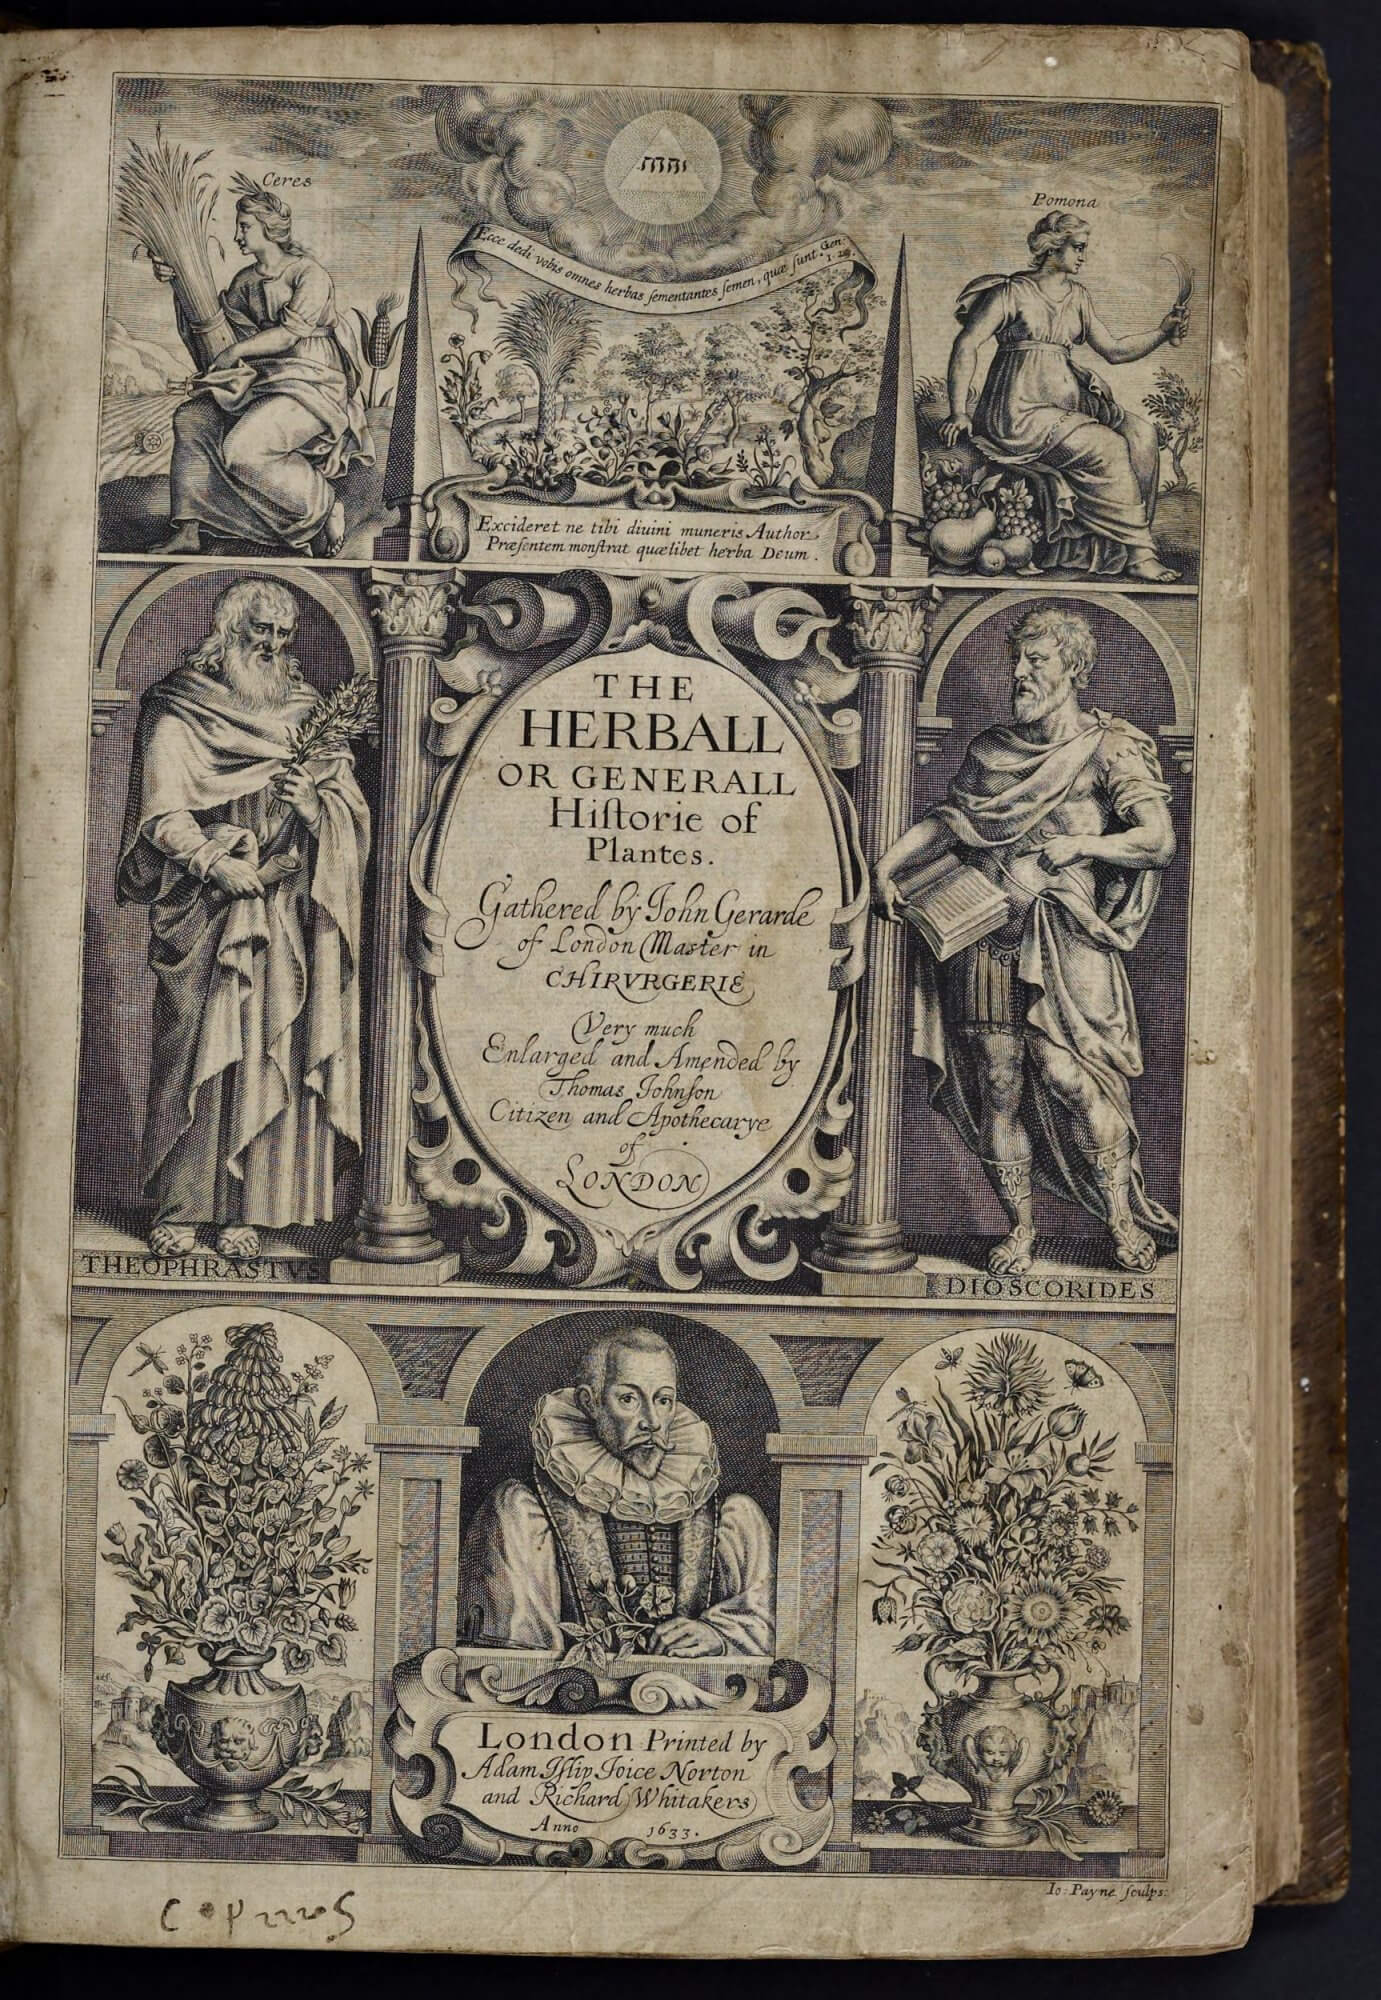 יהוה
Ceres
Pomona
Ecce dedi vobis omnes herbas ſementantes ſemen, quæ ſunt. Gen: 1. 29.
Excideret ne tibi diuini muneris Author,
Præſentem monſtrat quælibet herba Deum.
THE
HERBALL
OR GENERALL
Hiſtorie of
Plantes.
Gathered by Iohn Gerarde
of London Master in
CHIRVRGERIE
Very much
Enlarged and Amended by
Thomas Iohnſon
Citizen and Apothecarye
of
LONDON
THEOPHRASTVS
DIOSCORIDES
London Printed by
Adam Iſlip Ioice Norton
and Richard Whitakers
Anno 1633.
Io: Payne ſculps: